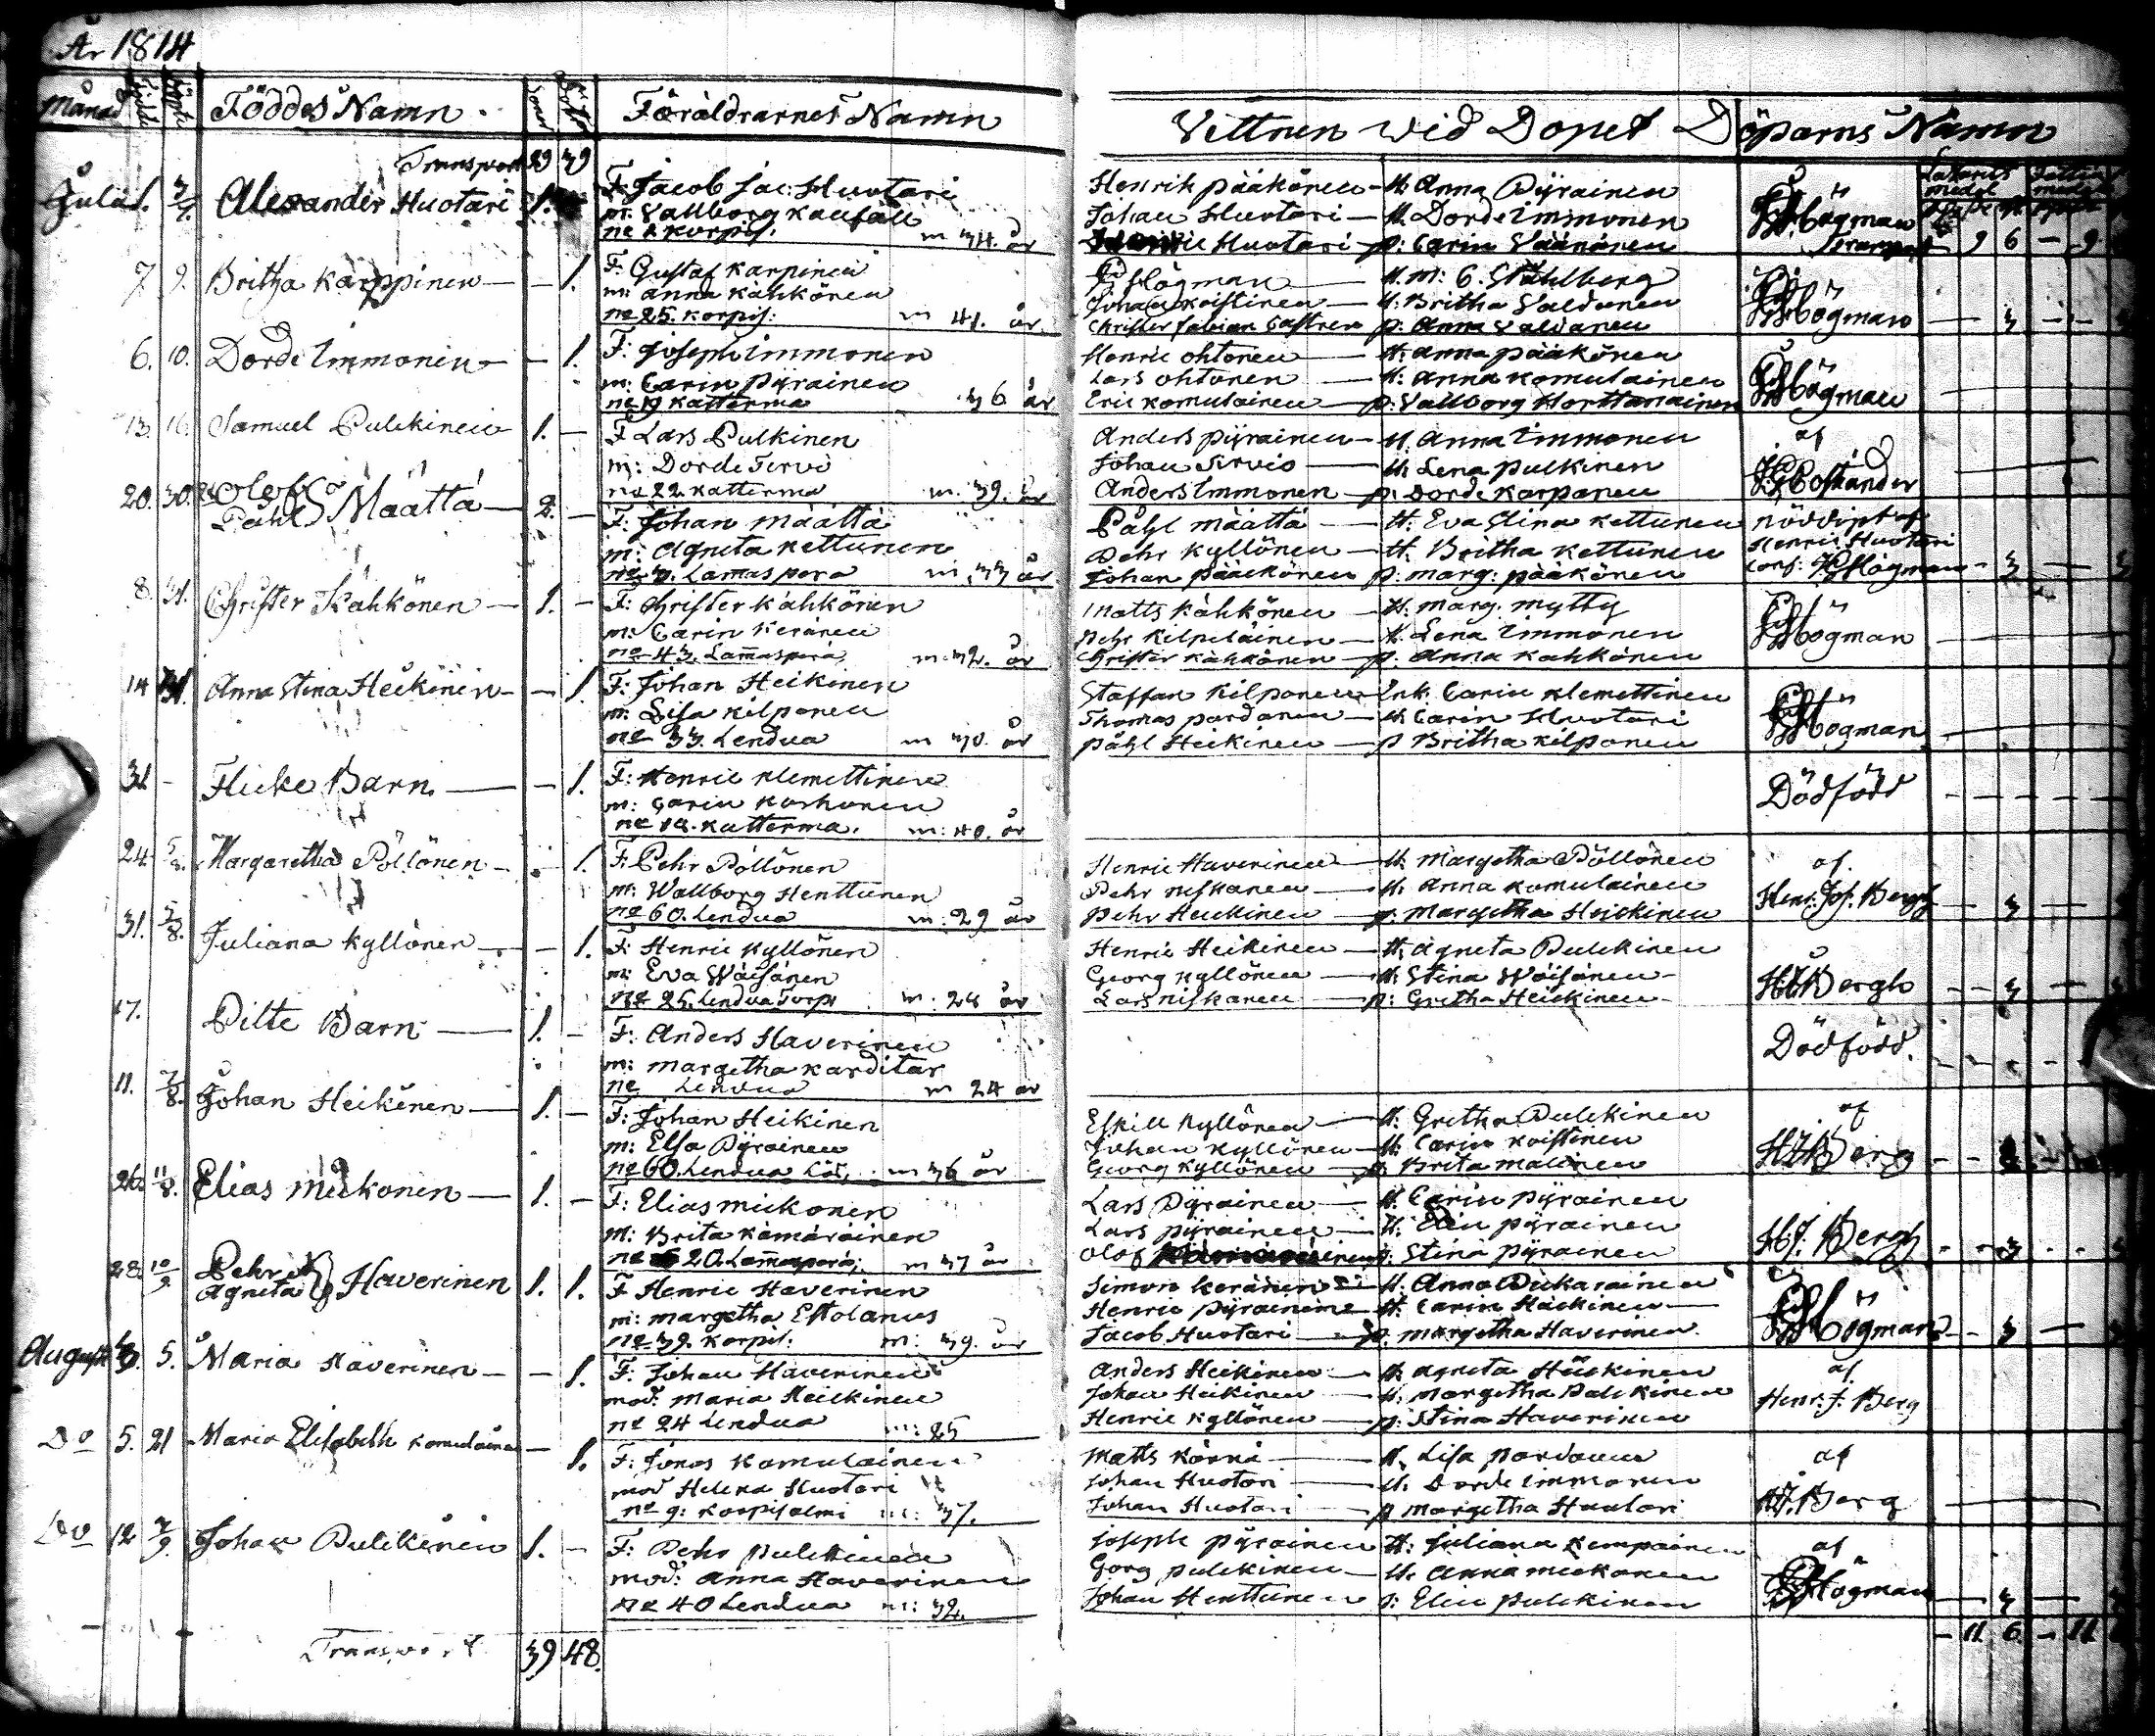 År 1814
Månad Födde Döpte Föddes Namn. Söner Dottr Föräldrarnes Namn
Vittnen wid Dopet Döparns Namn
Transport 29 39
Julii 1. 3/7. Alexander Huotari 1.
F: Jacob Jac: Huotari
m: Vallborg Kaufall
no 2 Korpis. m 34. år
Henrik Pääkönen — H. Anna Pyrainen
Johan Huotari — H. Dorde Immonen
Henric Huotari — p: Carin Väänänen
Högman
Transport 9 6 — 9
7. 9. Britha Karppinen — — 1.
F: Gustaf Karpinen
m: Anna Kähkönen
no 25. Korpis: m 41. år
Högman — H. M: C. Ståhlberg
Johan Koistinen — H. Britha Valdanen
Christer Fabian Castren p: Anna Valdanen
Högman — 3 — —
6. 10. Dorde Immonen — — 1.
F: Joseph Immonen
m: Carin Pyrainen
no 19 Katterma 36 år
Henric Ohtonen — H. Anna Pääkönen
Lars Ohtonen — H: Anna Komulainen
Eric Komulainen — p: Vallborg Horttanainen
Högman
13. 16. Samuel Pulckinen 1. —
F Lars Pulkinen
m: Dorde Tervo
no 22 Katterma m. 39. år
Anders Pyrainen — H. Anna Immonen
Johan Servio — H. Lena Pulkinen
Anders Immonen — p. Dorde Karpanen
af
Costiander
20. 30. Olof
Påhl } Määttä — 2. —
F: Johan Määttä
m: Agneta Kettunen
no 3. Lamaspera m. 33 år
Påhl Määttä — H. Eva Stina Kettunen
Pehr Kyllönen — H. Britha Kettunen
Johan Pääckönen p: Marg: Pääkönen
Nöddöpt af
Henric Huotari
conf: Högman — 3 — 3
8. 31. Christer Kähkönen — 1. —
F: Christer Kähkönen
m: Carin Keränen
no 43. Lamaspera, m. 32. år
Matts Kähkönen — H. Marg. Mytty
Pehr Kilpeläinen — H. Lena Immonen
Christer Kähkönen — p. Anna Kähkönen
Högman
14 31. Anna Stina Heikinen — — 1
F: Johan Heikinen
m: Lisa Kilponen
no 33. Lendua m 30. år
Staffan Kilponen — Enk. Carin Klemettinen
Thomas Pardanen — H Carin Huotari
Påhl Heikinen — p Britha Kilponen
Högman
31 — Flicke Barn. — — 1.
F: Henric Klemettinen
m: Carin Korhonen
no 12. Katterma. m: 40. år
Dödfödd — — — — —
24. 5/8. Margaretha Pöllönen — 1.
F: Pehr Pöllönen
m: Wallborg Henttunen
no 60. Lendua m: 29 år
Henric Haverinen — H. Margetha Pöllönen
Pehr Niskanen — H. Anna Komulainen
Pehr Heickinen — p. Margetha Heickinen
af.
Henr: Joh. Bergh — 3 —
31. 5/8. Juliana Kyllönen — — 1.
F: Henric Kyllönen
m: Eva Wäisänen
no 25. Lendua Torp m: 24 år
Henric Heikinen — H. Agneta Pulckinen
Georg Kyllönen — H. Stina Wäisänen —
Lars Niskanen — p: Gretha Heickinen —
HJBergh — — 3 —
17. Pilte Barn — 1. —
F: Anders Haverinen
m: Margetha Karditar
no Lendua m 24 år
Dödfödd.
11. 7/8. Johan Heikinen — 1. —
F: Johan Heikinen
m: Elsa Pyrainen
no 60. Lendua m 36 år
Eskill Kyllönen — H: Gretha Pulckinen
Johan Kyllönen — H: Carin Koistinen
Georg Kyllönen — p. Brita Malinen
af
HJBerg
26. 11/8. Elias Mickonen — 1. —
F: Elias Mickonen
m: Brita Kämäräinen
no 20. Lamaspera, m 37 år
Lars Pyrainen — H. Carin Pyrainen
Lars Pyrainen — H: Elin Pyrainen
Olof p. Stina Pyrainen
HJ. Bergh — — 3 — —
28. 10/9 Pehr
Agneta } Haverinen 1. 1.
F Henric Haverinen
m: Margetha Estolanus
no 39. Korpis. m: 39. år
Simon Keränen — H. Anna Pickarainen
Henric Pyrainen — H. Carin Häckinen —
Jacob Huotari — p. Margetha Haverinen
Högman — 3 —
August 3. 5. Maria Häverinen — — 1.
F: Johan Haverinen
mod: Maria Heickinen
no 24 Lendua m: 25
Anders Heickinen — H. Agneta Häckinen
Johan Heikinen — H. Margetha Pulckinen
Henric Kyllönen — p: Stina Haverinen
af
Henr: J: Berg
Do 5. 21 Maria Elisabeth Komulainen — 1.
F: Jonas Komulainen
mod Helena Huotari
no 9: Korpisalmi m: 37.
Matts Körnä — H. Lisa Pardanen
Johan Huotari — H. Dorde Immonen
Johan Huotari — p Margetha Huotari
af
HJ.Berg
Do 12 2/9. Johan Pulckinen 1. —
F: Pehr Pulckinen
mod: Anna Haverinen
no 40 Lendua m: 32.
Joseph Pyrainen H: Juliana Kempainen
Görg Pulckinen — H. Anna Mickonen
Johan Henttunen p: Elin Pulckinen
af
Högman — 3 —
Transport 39 48.
— 11. 6. — 11